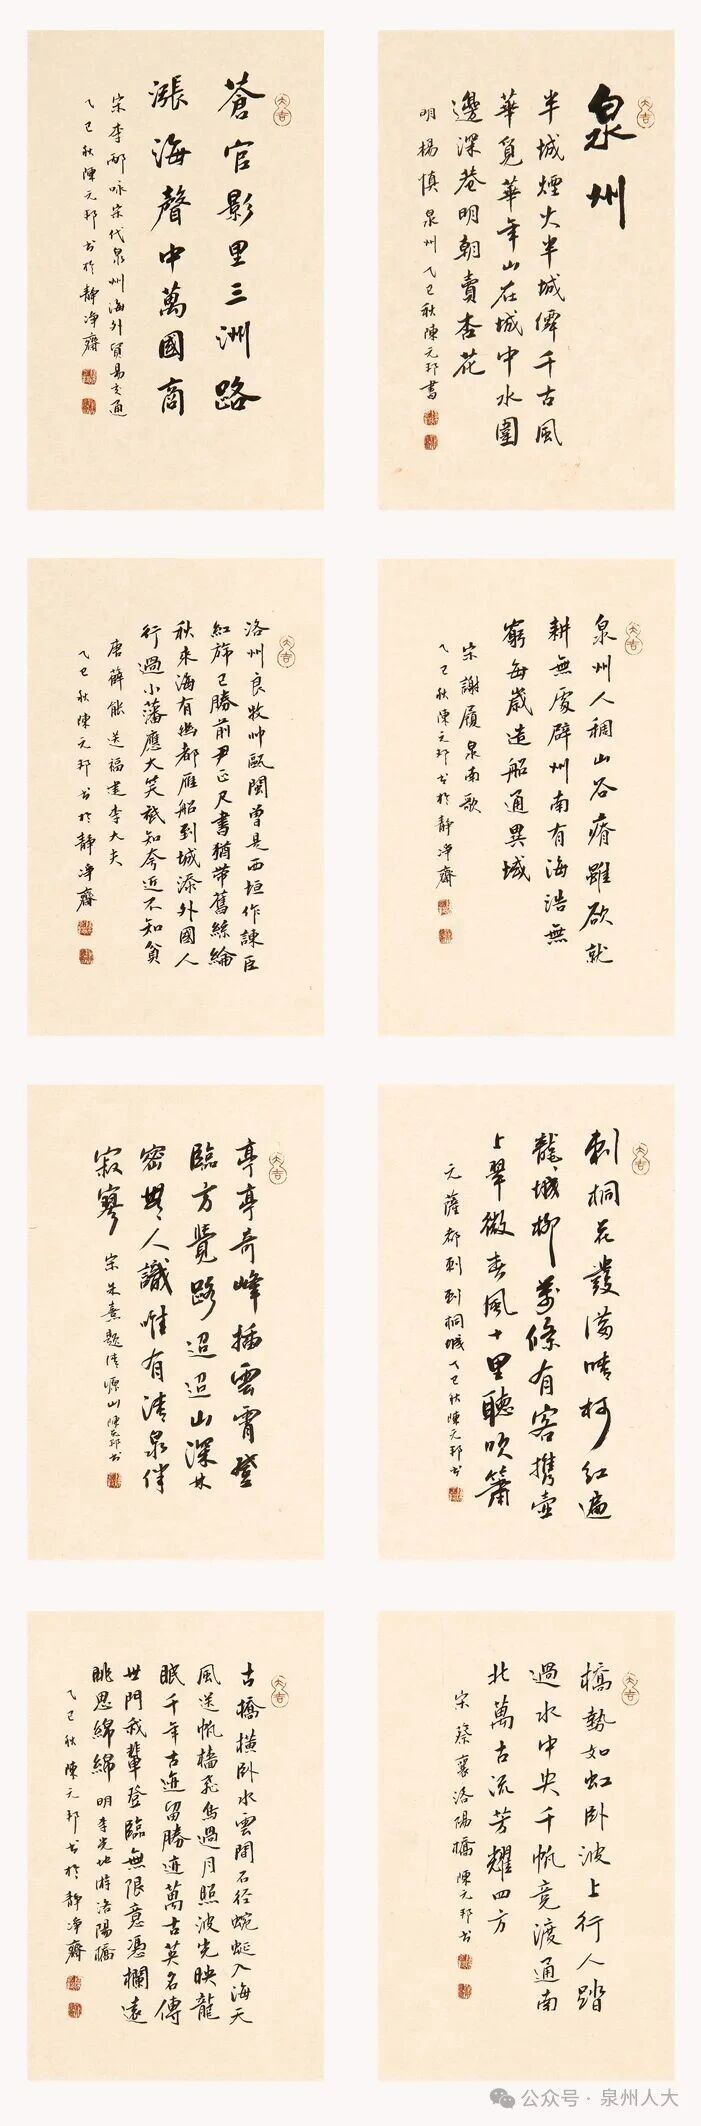 泉州
半城煙火半城僊千古風
華覓華年山在城中水圍
邊深巷明朝賣杏花
明楊慎泉州乙巳秋陳元邦書
大吉
蒼官影里三洲路
漲海聲中萬國商
宋李邴咏宋代泉州海外貿易交通
乙巳秋陳元邦书於靜淨齋
大吉
泉州人稠山谷瘠雖欲就
耕無處辟州南有海浩無
窮每歲造船通異域
宋謝履泉南歌
乙巳秋陳元邦书於靜淨齋
大吉
洛州良牧帅甌閩曾是西垣作諫臣
紅旆已勝前尹正尺書猶带舊絲綸
秋來海有幽都雁船到城添外國人
行過小藩應大笑衹知夸近不知貧
唐薛能送福建李大夫
乙巳秋陳元邦书於靜淨齋
大吉
刺桐花發滿晴柯紅遍
龍城柳萬條有客攜壶
上翠微春風十里聽吹簫
元薩都剌刺桐城乙巳秋陳元邦书
大吉
亭亭奇峰插雲霄登
臨方覺路迢迢山深林
密無人識唯有清泉伴
寂寥宋朱熹題清源山陳元邦书
大吉
橋勢如虹卧波上行人踏
過水中央千帆竞渡通南
北萬古流芳耀四方
宋蔡襄洛陽橋陳元邦书
大吉
古橋橫卧水雲間石径蜿蜒入海天
風送帆檣飛鸟過月照波光映龍
眠千年古迹留勝迹萬古英名傳
世間我輩登臨無限意憑欄遠
眺思綿綿明李光地游洛陽橋
乙巳秋陳元邦书於靜淨齋
公众号·泉州人大